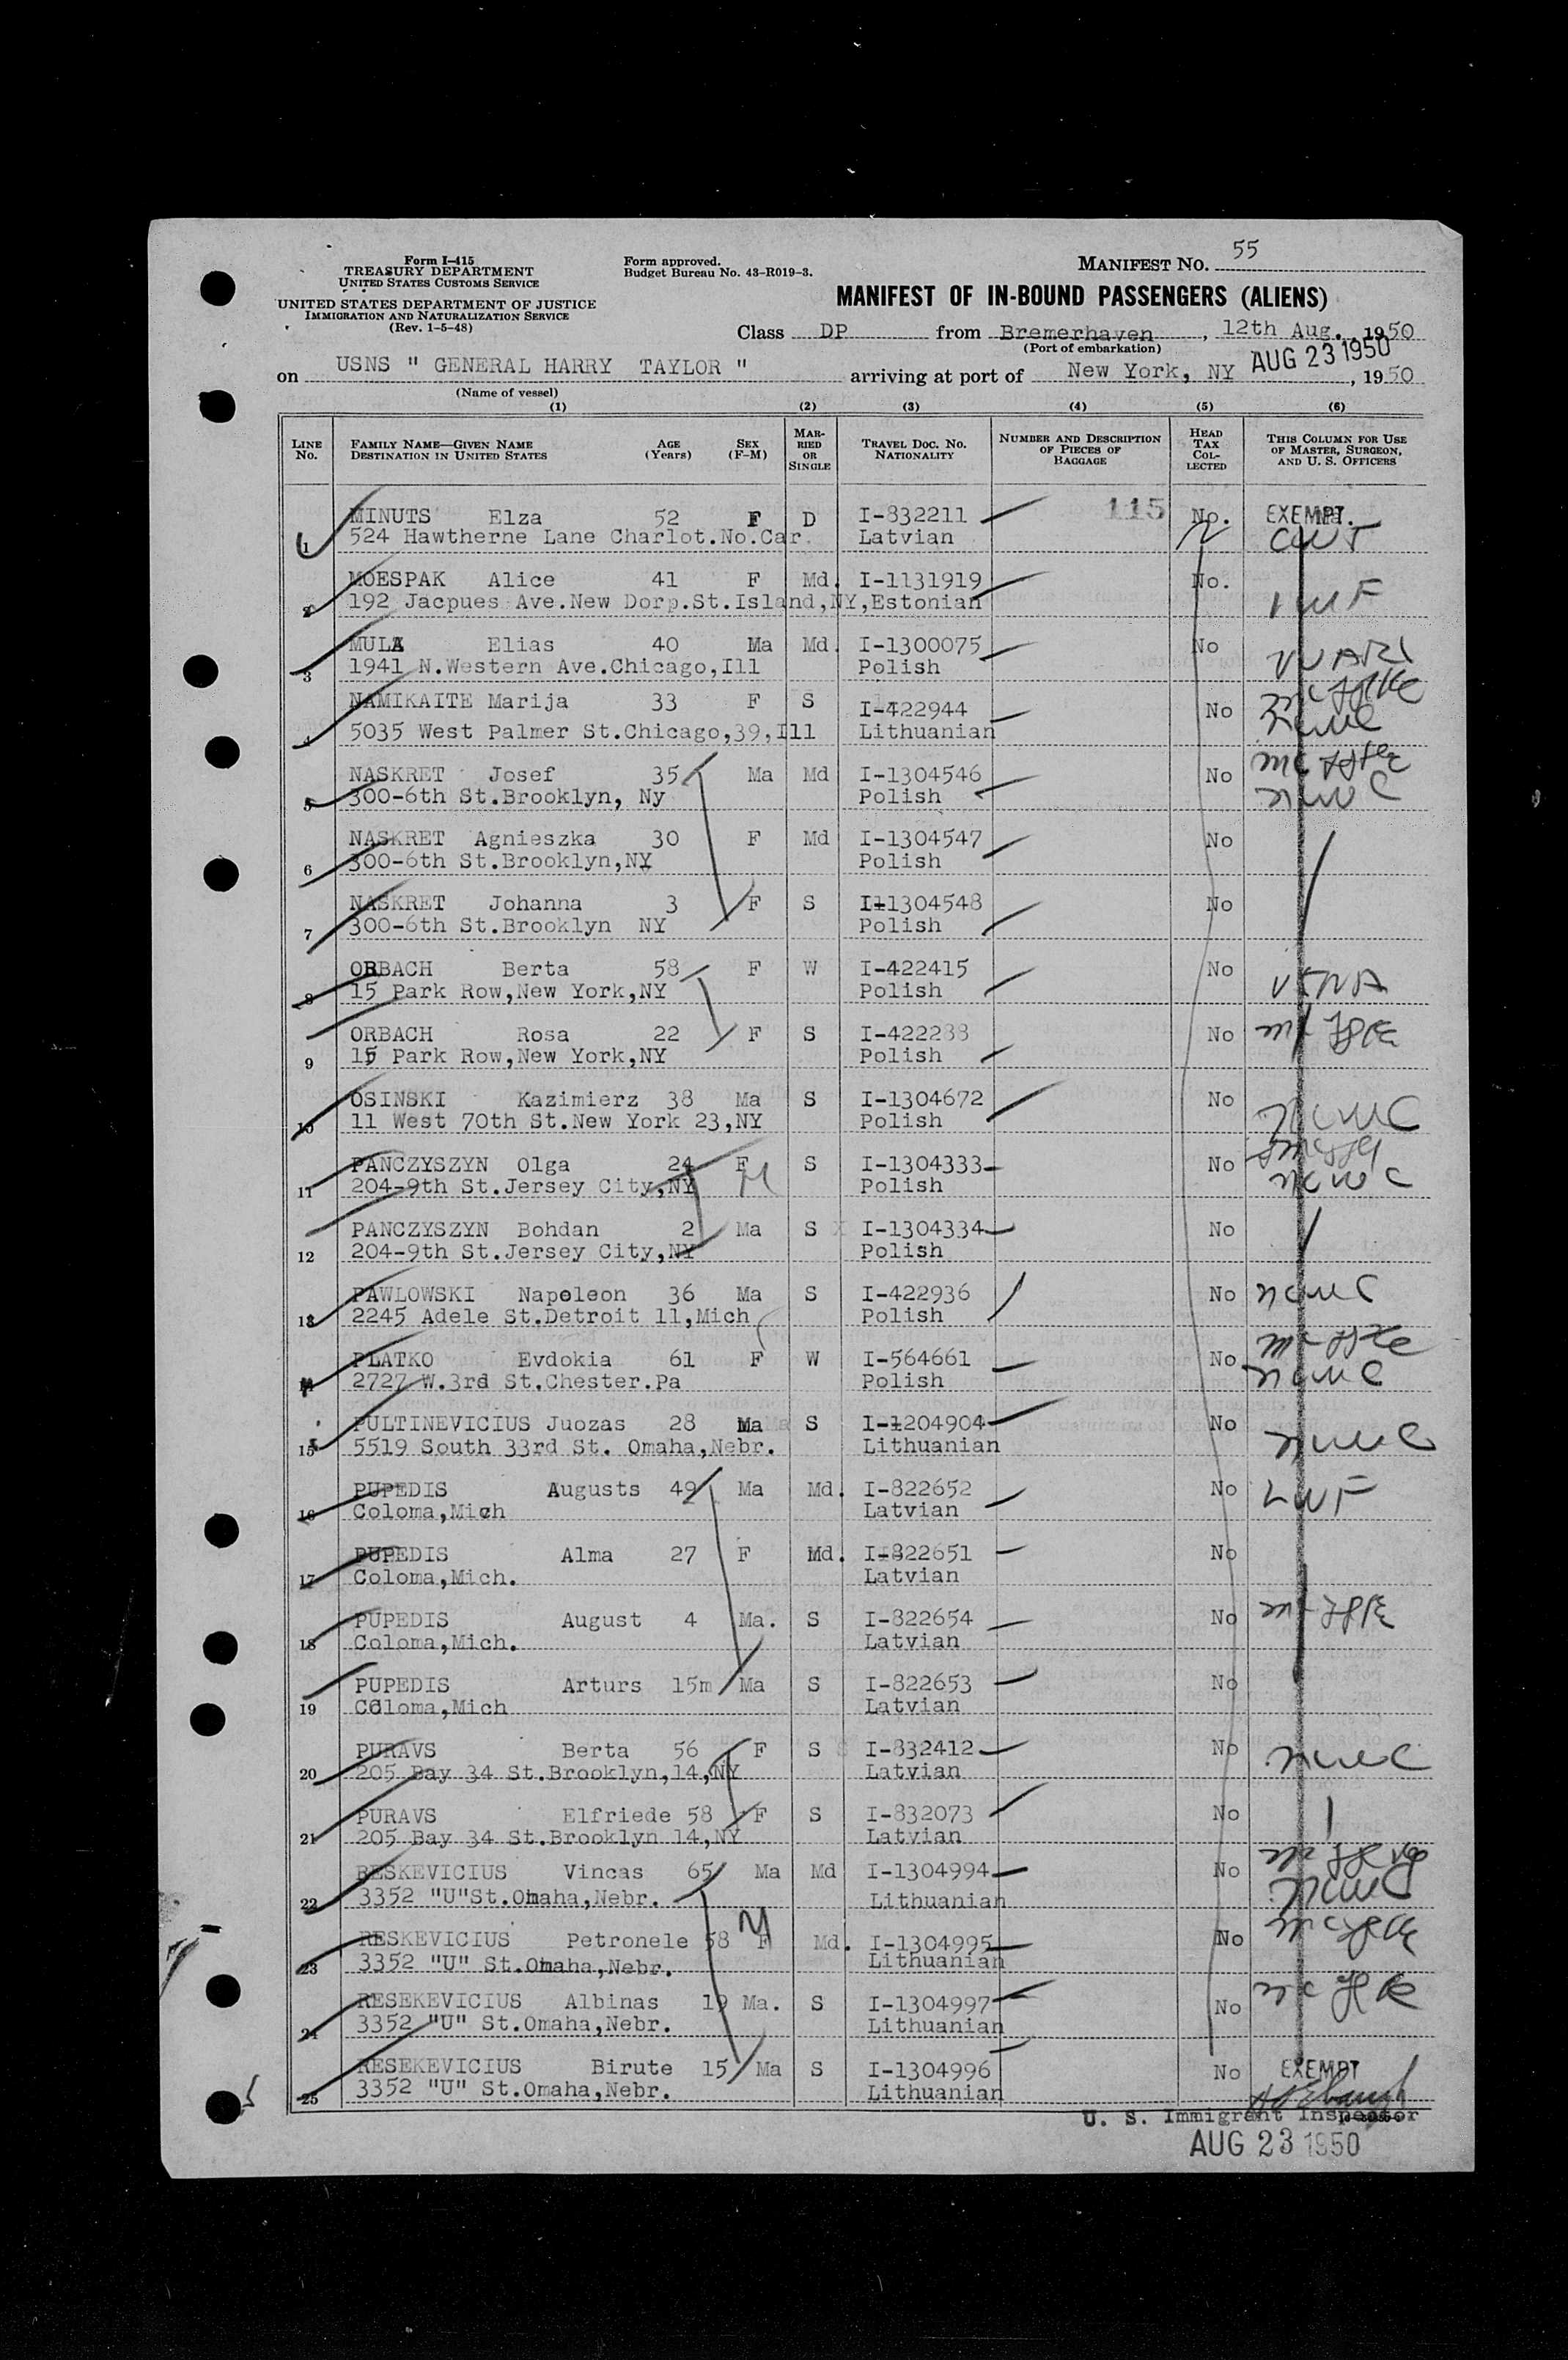 Form I-415
TREASURY DEPARTMENT
UNITED STATES CUSTOMS SERVICE
UNITED STATES DEPARTMENT OF JUSTICE
IMMIGRATION AND NATURALIZATION SERVICE
(Rev. 1-5-48)
Form approved.
Budget Bureau No. 43-R019-3.
MANIFEST NO. 55
MANIFEST OF IN-BOUND PASSENGERS (ALIENS)
Class DP from Bremerhaven, 12th Aug., 1950
(Port of embarkation)
on USNS " GENERAL HARRY TAYLOR " arriving at port of New York, NY AUG 23 1950, 1950
(Name of vessel)
(1) (2) (3) (4) (5) (6)
LINE NO. FAMILY NAME—GIVEN NAME DESTINATION IN UNITED STATES AGE (Years) SEX (F-M) MARRIED OR SINGLE TRAVEL DOC. NO. NATIONALITY NUMBER AND DESCRIPTION OF PIECES OF BAGGAGE HEAD TAX COLLECTED THIS COLUMN FOR USE OF MASTER, SURGEON, AND U. S. OFFICERS
1 MINUTS Elza 52 F D I-832211 115 No. EXEMPT.
524 Hawtherne Lane Charlot.No.Car. Latvian
2 MOESPAK Alice 41 F Md. I-1131919 No.
192 Jacpues Ave.New Dorp.St.Island,NY,Estonian
3 MULA Elias 40 Ma Md. I-1300075 No
1941 N.Western Ave.Chicago,Ill Polish
4 NAMIKAITE Marija 33 F S I-422944 No
5035 West Palmer St.Chicago,39,Ill Lithuanian
5 NASKRET Josef 35 Ma Md I-1304546 No
300-6th St.Brooklyn, Ny Polish
6 NASKRET Agnieszka 30 F Md I-1304547 No
300-6th St.Brooklyn,NY Polish
7 NASKRET Johanna 3 F S I-1304548 No
300-6th St.Brooklyn NY Polish
8 ORBACH Berta 58 F W I-422415 No
15 Park Row,New York,NY Polish
9 ORBACH Rosa 22 F S I-422238 No
15 Park Row,New York,NY Polish
10 OSINSKI Kazimierz 38 Ma S I-1304672 No
11 West 70th St.New York 23,NY Polish
11 PANCZYSZYN Olga 24 F M S I-1304333 No
204-9th St.Jersey City,NY Polish
12 PANCZYSZYN Bohdan 2 Ma S I-1304334 No
204-9th St.Jersey City,NY Polish
13 PAWLOWSKI Napoleon 36 Ma S I-422936 No
2245 Adele St.Detroit 11,Mich Polish
14 PLATKO Evdokia 61 F W I-564661 No
2727 W.3rd St.Chester.Pa Polish
15 PULTINEVICIUS Juozas 28 Ma S I-1204904 No
5519 South 33rd St. Omaha,Nebr. Lithuanian
16 PUPEDIS Augusts 49 Ma Md. I-822652 No LWF
Coloma,Mich Latvian
17 PUPEDIS Alma 27 F Md. I-822651 No
Coloma,Mich. Latvian
18 PUPEDIS August 4 Ma. S I-822654 No
Coloma,Mich. Latvian
19 PUPEDIS Arturs 15m Ma S I-822653 No
Coloma,Mich Latvian
20 PURAVS Berta 56 F S I-832412 No
205 Bay 34 St.Brooklyn,14,NY Latvian
21 PURAVS Elfriede 58 F S I-832073 No
205 Bay 34 St.Brooklyn 14,NY Latvian
22 RESKEVICIUS Vincas 65 Ma Md I-1304994 No
3352 "U"St.Omaha,Nebr. Lithuanian
23 RESKEVICIUS Petronele 58 F M Md. I-1304995 No
3352 "U" St.Omaha,Nebr. Lithuanian
24 RESEKEVICIUS Albinas 19 Ma. S I-1304997 No
3352 "U" St.Omaha,Nebr. Lithuanian
25 RESEKEVICIUS Birute 15 Ma S I-1304996 No EXEMPT
3352 "U" St.Omaha,Nebr. Lithuanian
U. S. Immigrant Inspector
AUG 23 1950